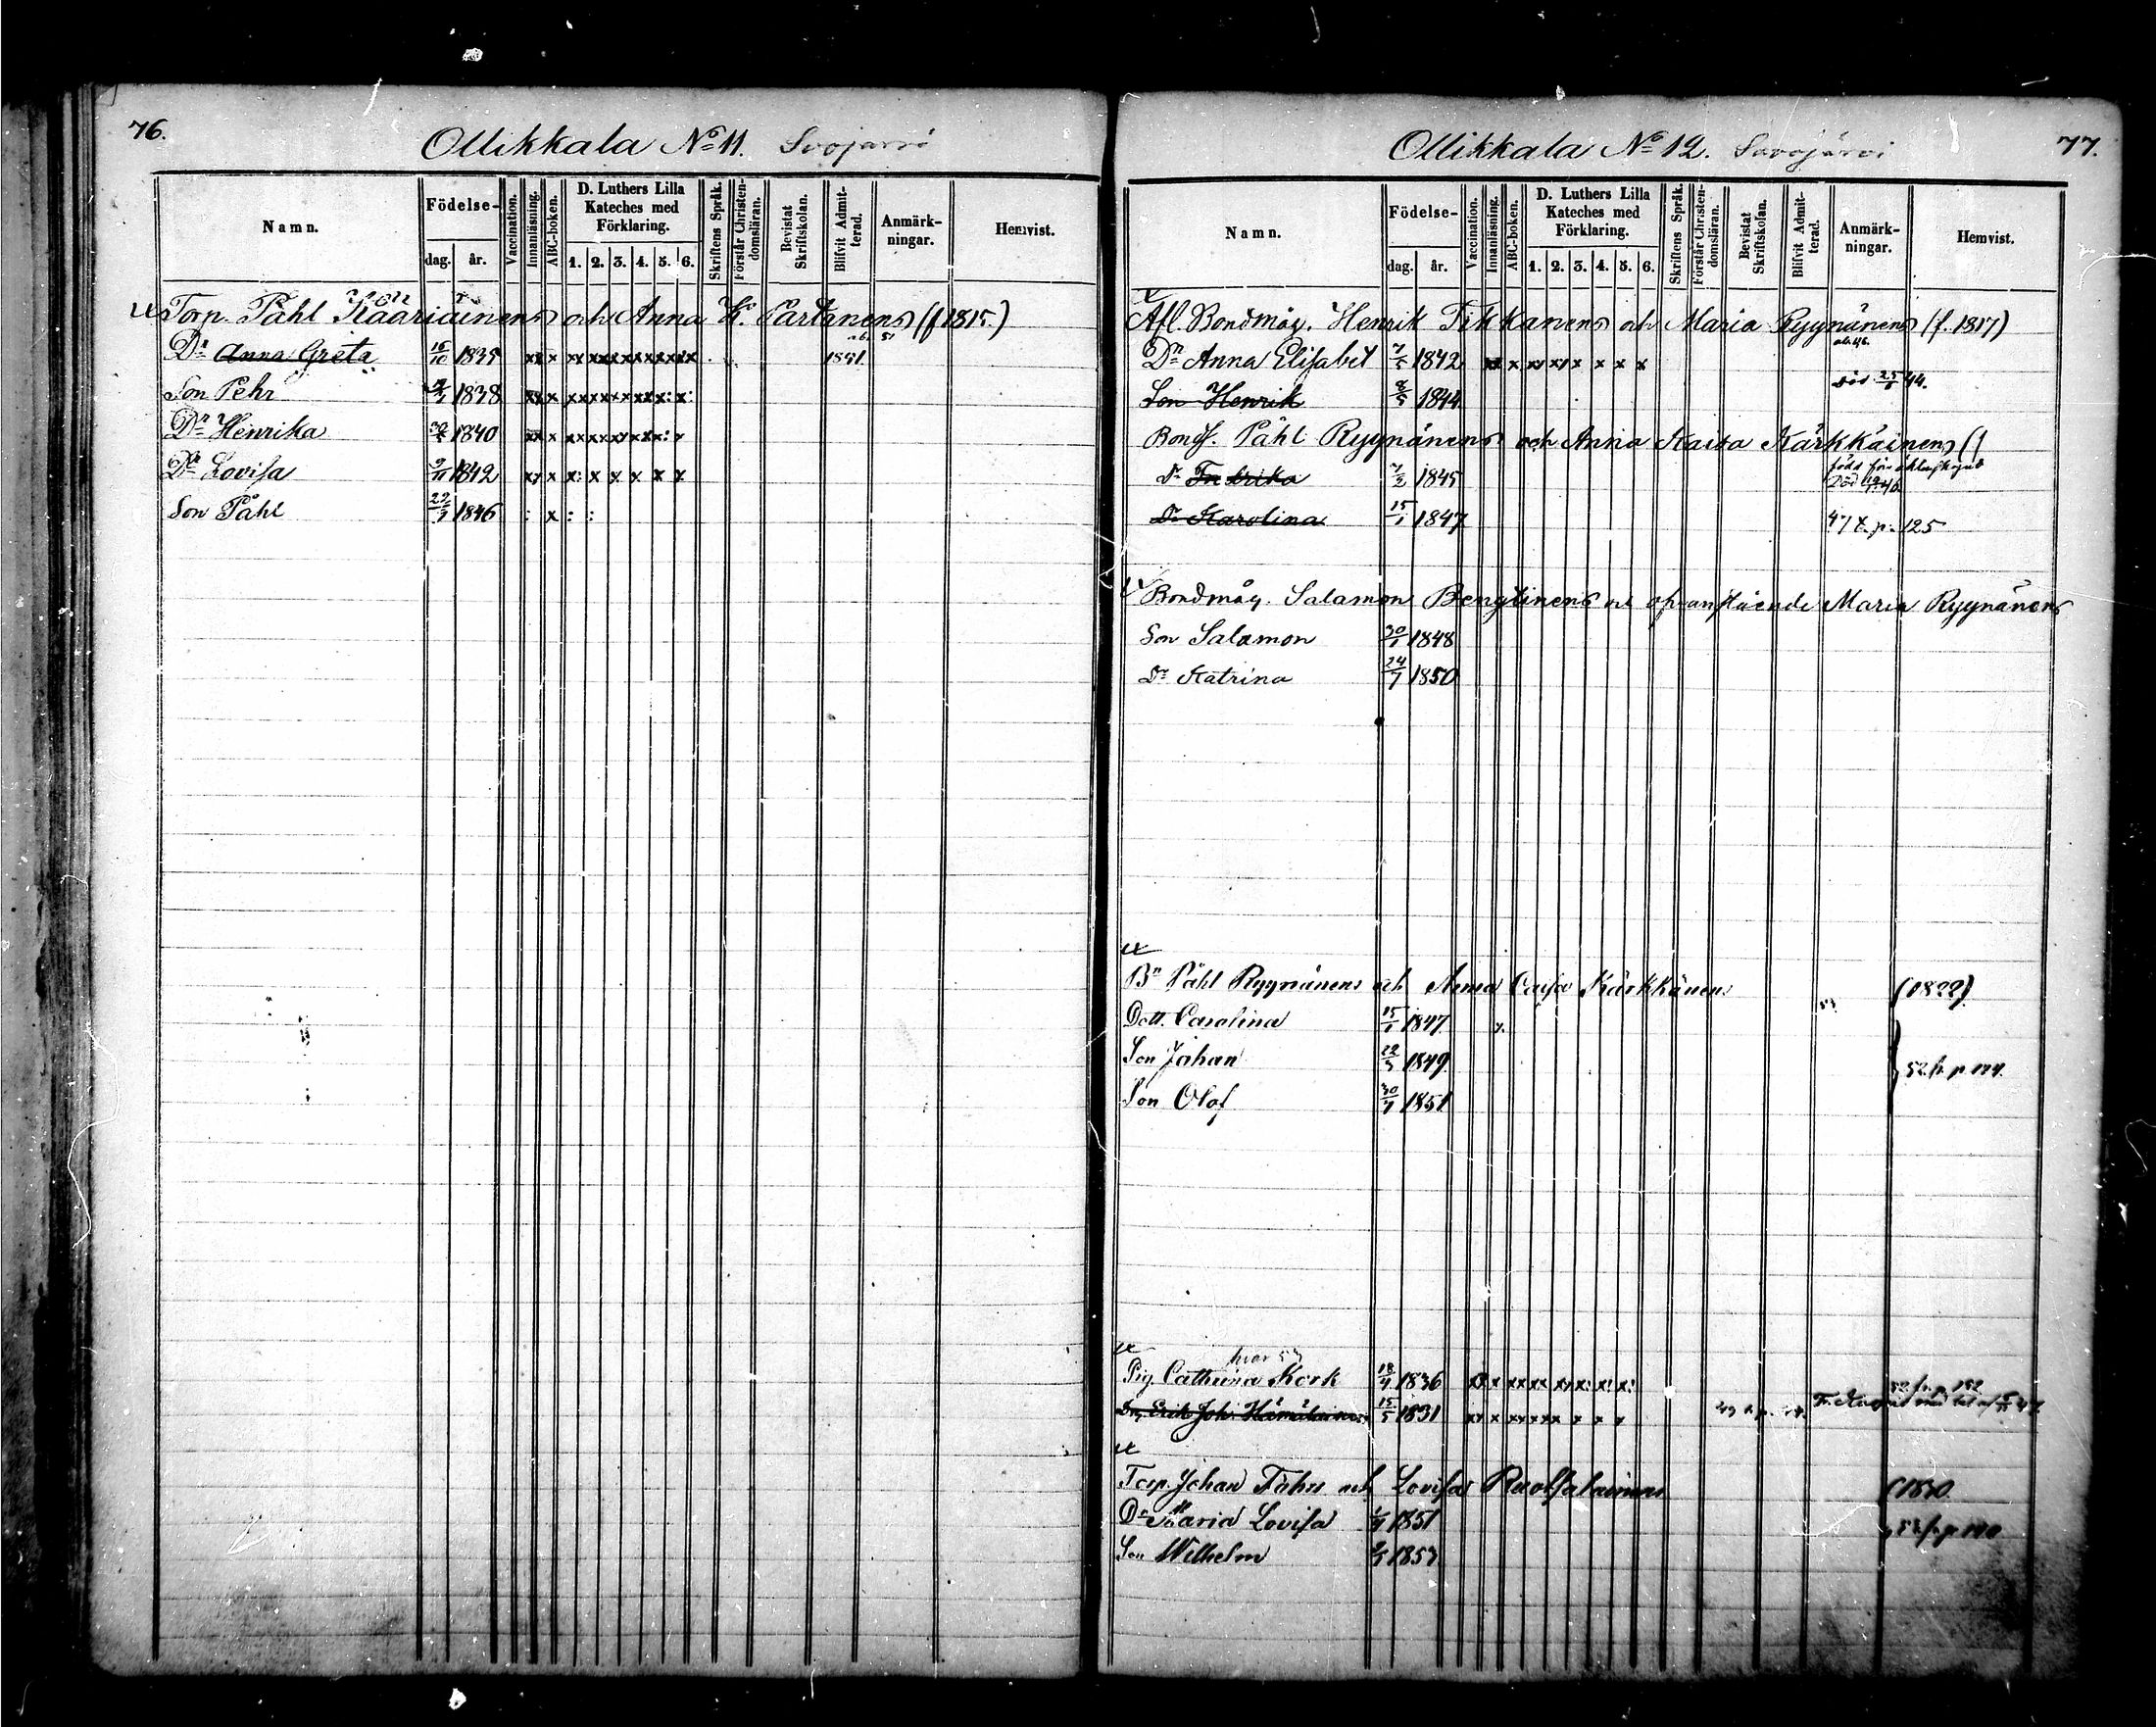 76.
Ollikkala No 11. Suojärvi
Namn. Födelse- dag. år. Vaccination. Innanläsning. ABC-boken. D. Luthers Lilla Kateches med Förklaring. 1. 2. 3. 4. 5. 6. Skriftens Språk. Förstår Christen-domsläran. Bevistat Skriftskolan. Blifvit Admit-terad. Anmärk-ningar. Hemvist.
Torp. Påhl Kääriäinens och Anna K. Partanens (f 1815.)
Dr Anna Greta 16/10 1835 1851
Son Pehr 1838
Dr Henrika 1840
Dr Lovisa 1842
Son Påhl 1846
77.
Ollikkala No 12. Suvojärvi
Namn. Födelse- dag. år. Vaccination. Innanläsning. ABC-boken. D. Luthers Lilla Kateches med Förklaring. 1. 2. 3. 4. 5. 6. Skriftens Språk. Förstår Christen-domsläran. Bevistat Skriftskolan. Blifvit Admit-terad. Anmärk-ningar. Hemvist.
Afl. Bondmåg. Henrik Tikkanens och Maria Ryynänens (f. 1817)
Dr Anna Elisabet 1842
Son Henrik 8/5 1844 död 25/5 44.
Bondes. Påhl Ryynänens och Anna Kaisa Kärkkäinens (f
Dr 7/2 1845 Död 46
Dr Karolina 15/1 1847 47 t. p. 125
Bondmåg. Salamon Bengtinens och ofvanstående Maria Ryynänens
Son Salamon 30/1 1848
Dr Katrina 24/7 1850
Bn Påhl Ryynänens och Anna Caisa Kärkkänens (1822)
Dott. Carolina 15/1 1847
Son Johan 22/3 1849 52 fr. p. 174.
Son Olof 30/7 1851
Pig. Cathrina Kork 18/4 1836 52 fr. p. 152
Erik Joh. Hämäläinen 15/5 1831
Torp. Johan Fahn och Lovisa
Dr Maria Lovisa 1851 52 fr. p. 140
Son Wilhelm 1853